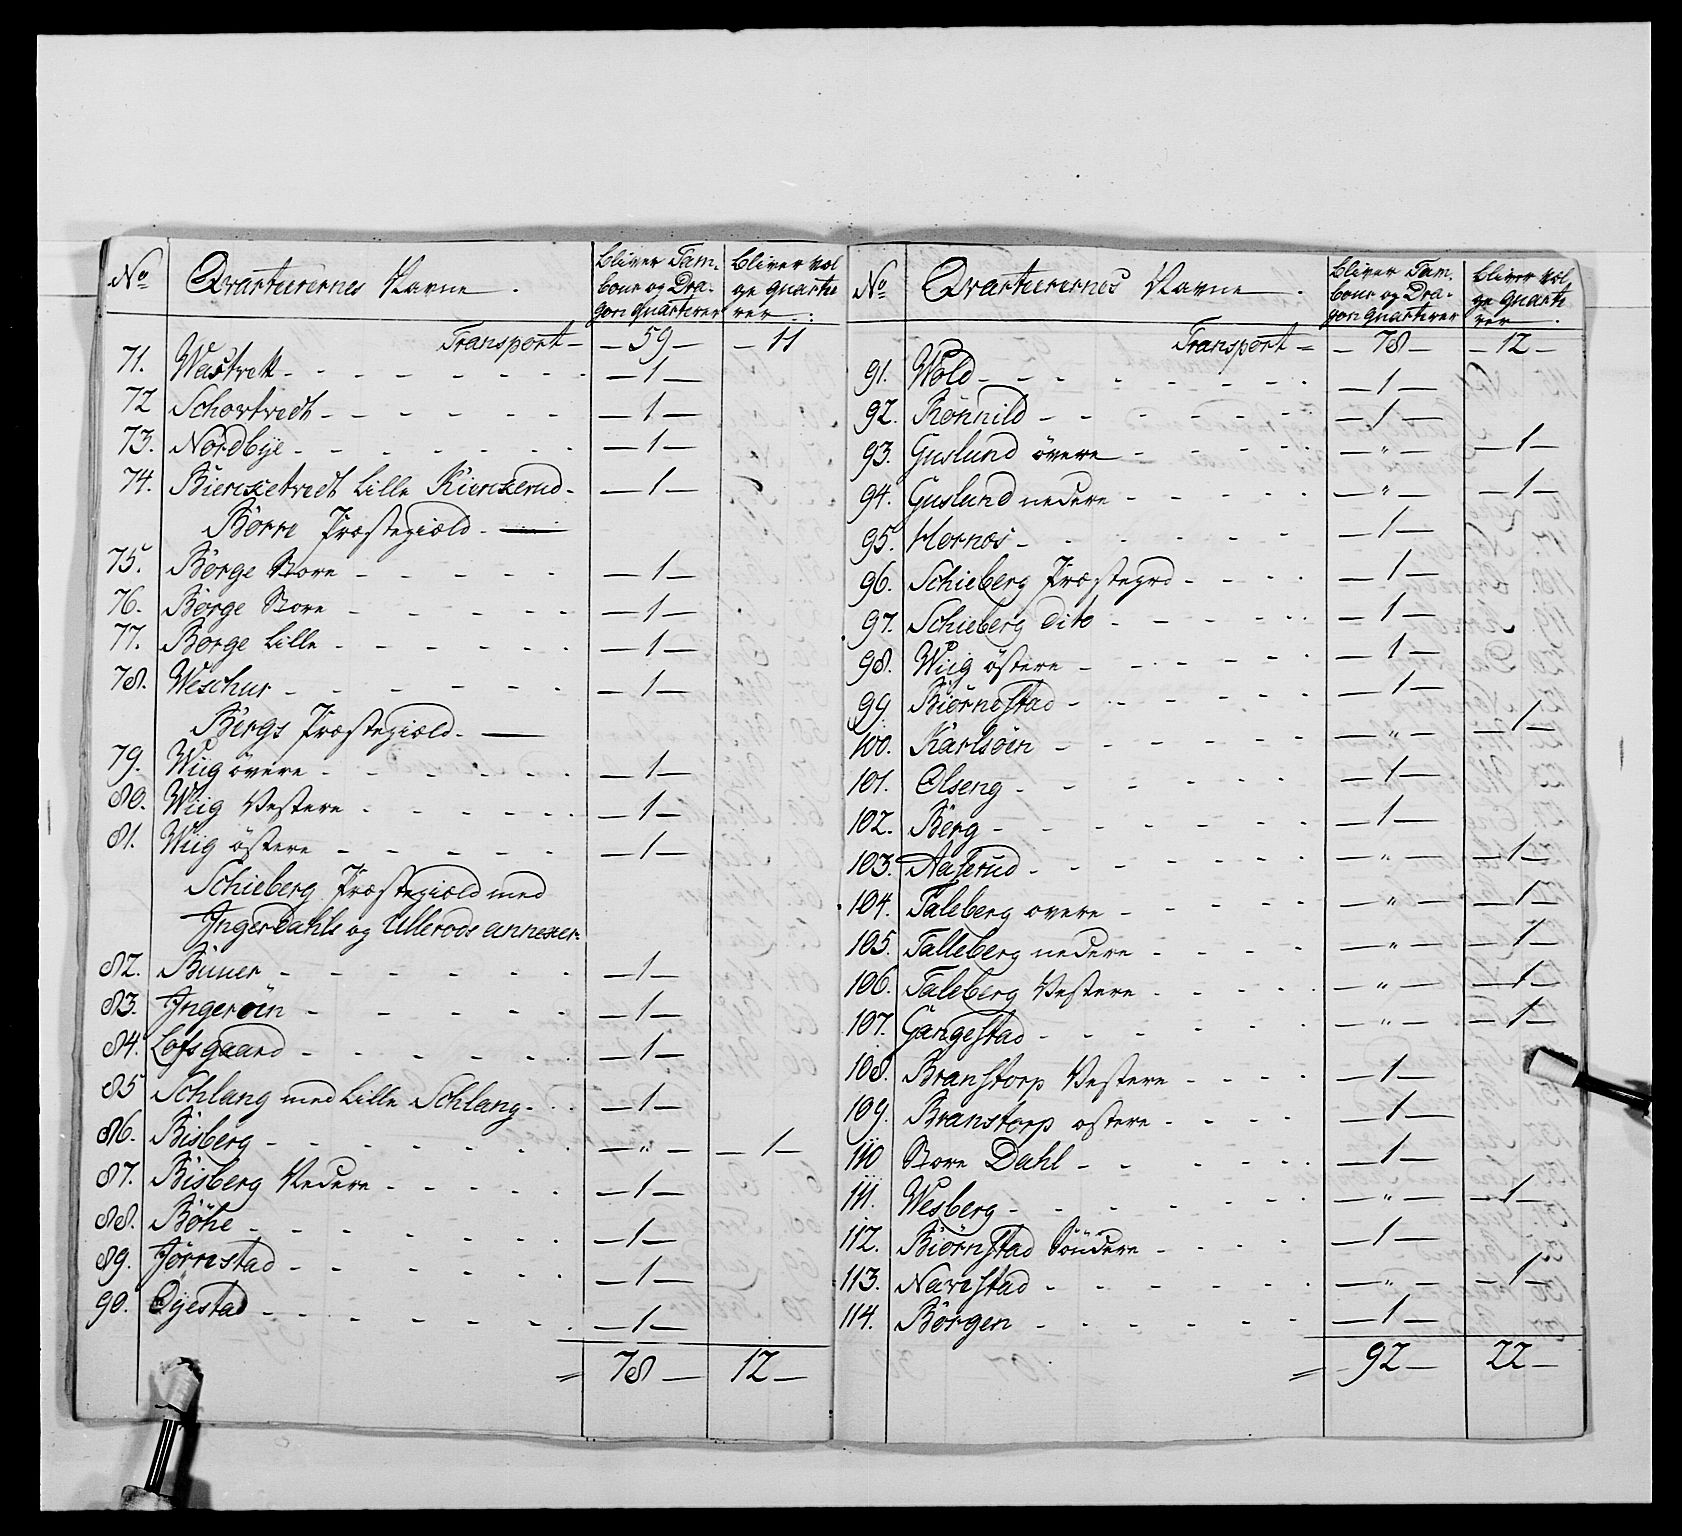 No Qvarterernes Navne.
bliver Tam-
bour og Dra-
gon quarterer
bliver Vol
ge quarte
rer
Transport – – 59 – – 11
71. Wastvett – 1 –
72 Schortvedt – 1 –
73. Nordbye – 1 –
74. Bierchetvedt Lille Kirckerud – 1 –
Borre Præstegiæld.
75. Börge Store – 1 –
76. Börge Store – 1 –
77. Borge Lille – 1 –
78. Weschur – 1 –
Bergs Præstegiæld.
79. Wiig övere – 1 –
80. Wiig Vestere – 1 –
81. Wiig östere – 1 –
Schieberg Præstegiæld med
IngerDahls og Ullerods annexer.
82. Buuer – 1 –
83. Ingeröin – 1 –
84. Lofsgaard – 1 –
85 Schlang med Lille Schlang – 1 –
86. Bisberg – " – – 1 –
87. Bisberg Nedere – 1 –
88. Böhe – 1 –
89. Jörnstad – 1 –
90. Öÿestad – 1 –
= 78 – 12 –
No Qvarterernes Navne.
bliver Tam-
bour og Dra-
gon quarterer
bliver Vol
ge quarte
rer
Transport = – 78 – – 12 –
91. Wold – 1 –
92. Rönnild – 1 –
93. Guslund övere – " – – 1 –
94. Guslund nedere – " – – 1 –
95. Hornæs – 1 –
96. Schieberg Præstegrd – 1 –
97. Schieberg dito – 1 –
98. Wiig östere – 1 –
99. Biörnestad – 1 –
100. Karlsöin – " – – 1 –
101. Olseng – 1 –
102. Berg – 1 –
103. Aaserud – " – – 1 –
104. Taleberg overe – " – – 1 –
105. Talleberg nedere – " – – 1 –
106. Taleberg Vestere – " – – 1 –
107. Gangestad – " – – 1 –
108. Branstorp Vestere – 1 –
109. Branstorp ostere – 1 –
110 Store Dahl – 1 –
111. Wesberg – " – – 1 –
112. Biörnstad Söndere – 1 –
113. Navestad – " – – 1 –
114. Börgen – 1 –
= 92 – 22 –